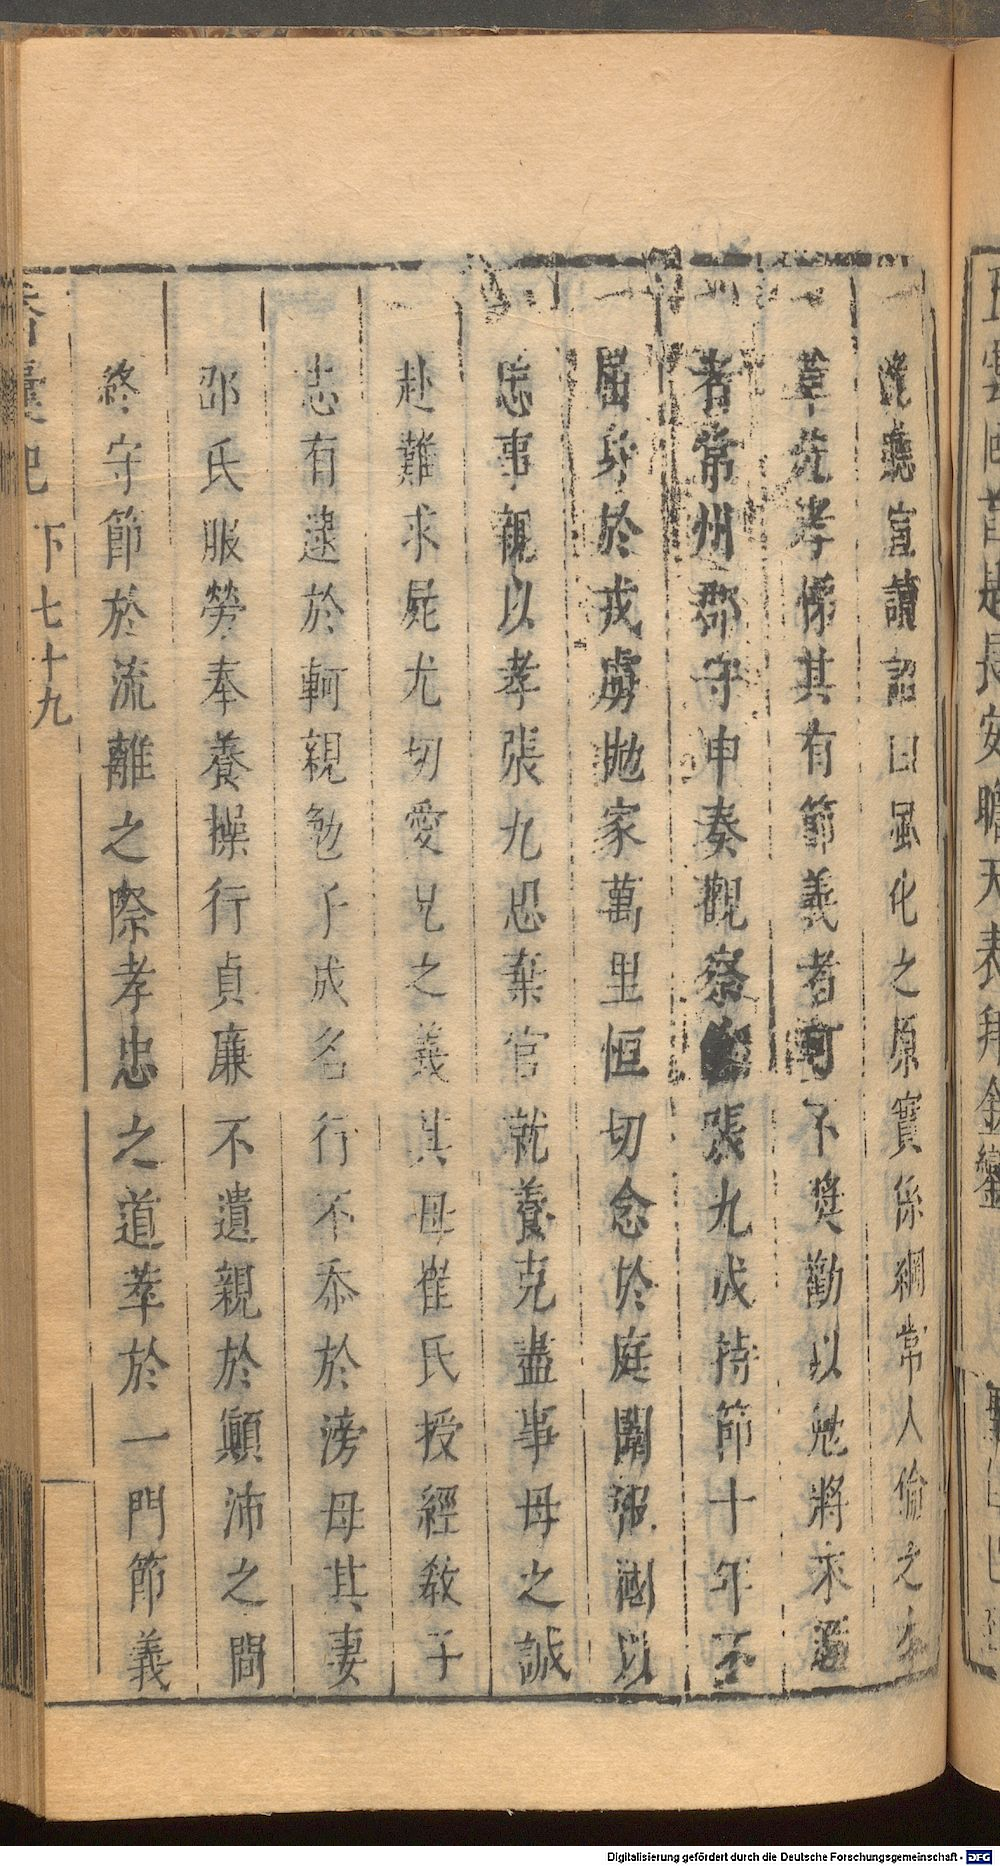 宣讀詔曰風化之原實係綱常人倫之本
莫先孝悌其有節義者可不奬勸以勉將來邇
者常州郡守申奏觀察張九成持節十年不
屈身於戎虜拋家萬里恒切念於庭闈報國以
忠事親以孝張九思棄官就養克盡事母之誠
赴難求屍尤切愛兄之義其母崔氏授經敎子
志有逮於軻親勉子成名行不忝於滂母其妻
邵氏服勞奉養操行貞廉不遺親於顛沛之間
終守節於流離之際孝忠之道萃於一門節義
香囊記 下七十九
Digitalisierung gefördert durch die Deutsche Forschungsgemeinschaft - DFG